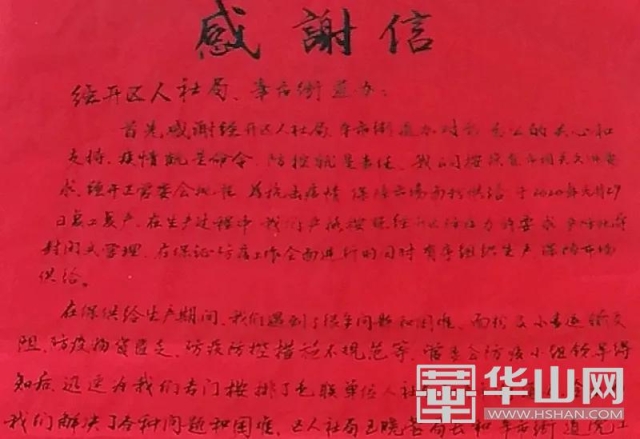 感謝信
经开区人社局、辛市街道办：
首先，感谢经开区人社局、辛市街道办对我公司的关心和
支持。疫情就是命令，防控就是责任。我公司按照省市相关文件要
求，经开区管委会批准，为抗击疫情，保障市场面粉供给，于2020年元月29
日复工复产。在生产过程中，我们严格按照经开区防控办的要求
封闭式管理，在保证防疫工作全面进行的同时有序组织生产，保障市场
供给。
在保供给生产期间，我们遇到了很多问题和困难，面粉及小麦运输受
阻，防疫物资匮乏，防疫防控措施不规范等，管委会防疫小组领导得
知后，迅速为我们专门安排了包联单位人社局
我们解决了各种问题和困难，区人社局王晓 局长和辛市街道
华山网
WWW.HSHAN.COM